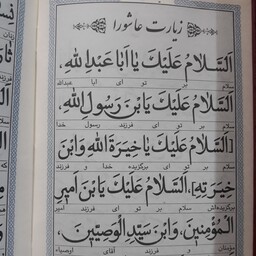 زیارت عاشورا
اَلسَّلَامُ عَلَیْکَ یَا اَبَا عَبْدِ اللهِ،
سلام بر تو ای ابا عبدالله
اَلسَّلَامُ عَلَیْکَ یَابْنَ رَسُولِ اللهِ،
سلام بر تو ای فرزند رسول خدا
[اَلسَّلَامُ عَلَیْکَ یَا خِیَرَةَ اللهِ وَابْنَ
سلام بر تو ای برگزیده خدا و فرزند
خِیَرَتِهِ]، اَلسَّلَامُ عَلَیْکَ یَابْنَ اَمِیرِ
برگزیده‌اش سلام بر تو ای فرزند امیر
الْمُؤْمِنِینَ، وَابْنَ سَیِّدِ الْوَصِیِّینَ،
مؤمنان و فرزند آقای اوصیاء